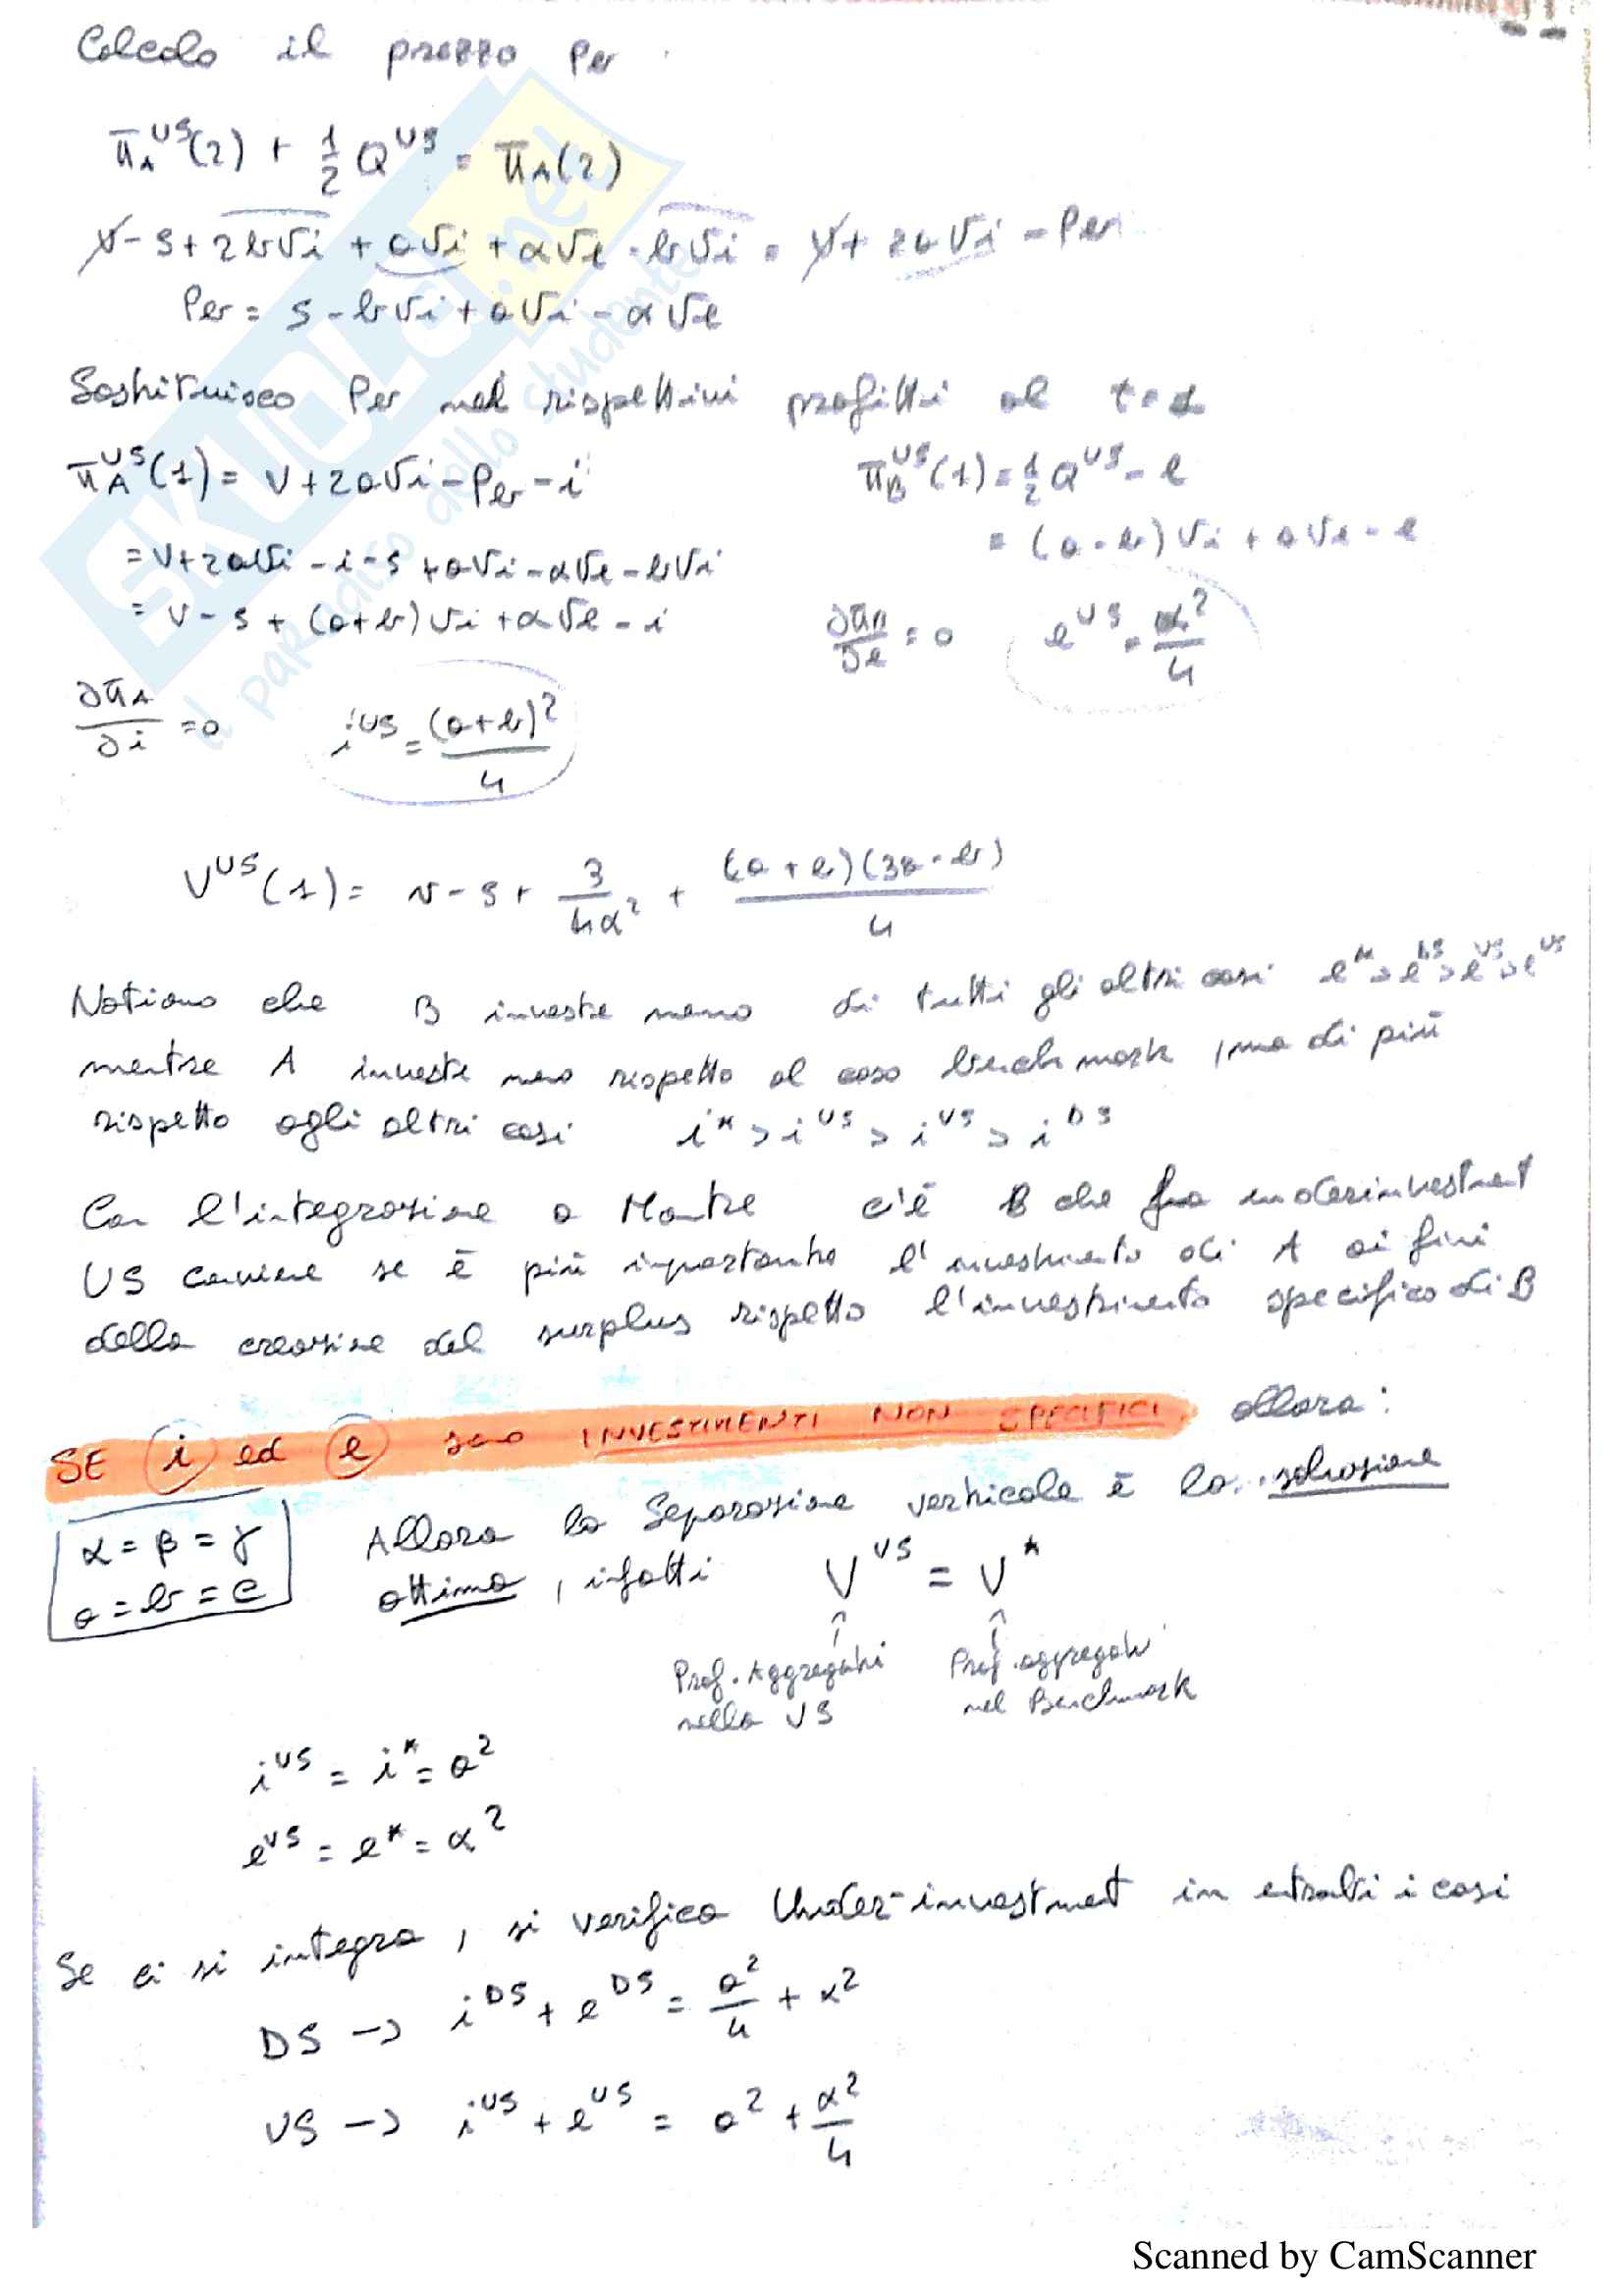 Calcolo il prezzo Per
π_A^US(2) + 1/2 Q^US = π_A(2)
V - s + 2b√i + a√i + α√e - b√i = V + 2a√i - Per
Per = s - b√i + a√i - α√e
Sostituisco Per nei rispettivi profitti al t=1
π_A^US(1) = V + 2a√i - Per - i
π_B^US(1) = 1/2 Q^US - e
= V + 2a√i - i - s + a√i - α√e - b√i
= (a - b)√i + a√e - e
= V - s + (a+b)√i + α√e - i
∂π_B/∂e = 0   e^US = α²/4
∂π_A/∂i = 0   i^US = (a+b)²/4
V^US(1) = v - s + 3/4α² + (a+b)(3a-b)/4
Notiamo che B investe meno di tutti gli altri casi e^* > e^DS > e^VS > e^US
mentre A investe meno rispetto al caso benchmark, ma di più
rispetto agli altri casi i^* > i^US > i^VS > i^DS
Con l'integrazione a Monte c'è B che fa underinvestment
US conviene se è più importante l'investimento di A ai fini
della creazione del surplus rispetto l'investimento specifico di B
SE i ed e sono INVESTIMENTI NON SPECIFICI, allora:
α = β = γ
a = b = c
Allora la Separazione verticale è la soluzione
ottima, infatti V^VS = V^*
Prof. Aggregati
nella VS
Prof. aggregati
nel Benchmark
i^VS = i^* = a²
e^VS = e^* = α²
Se ci si integra, si verifica Under-investment in entrambi i casi
DS → i^DS + e^DS = a²/4 + α²
US → i^US + e^US = a² + α²/4
SKUOLA.net
il paradiso dello studente
Scanned by CamScanner